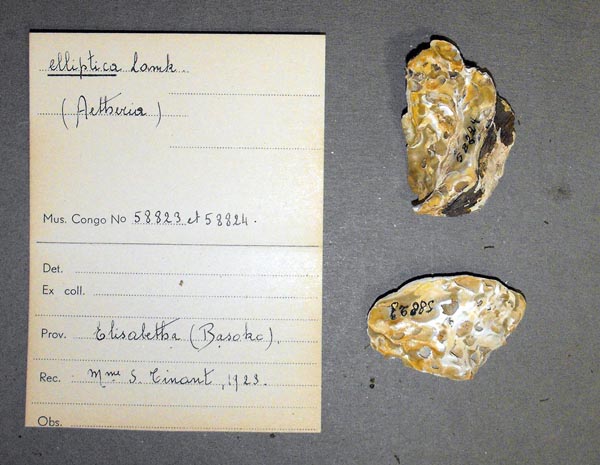 elliptica Lamk.
(Aetheria)
Mus. Congo No 58823 et 58824.
Det.
Ex coll.
Prov. Elisabetha (Basoko).
Rec. Mme S. Tinant, 1923.
Obs.
58824
58823